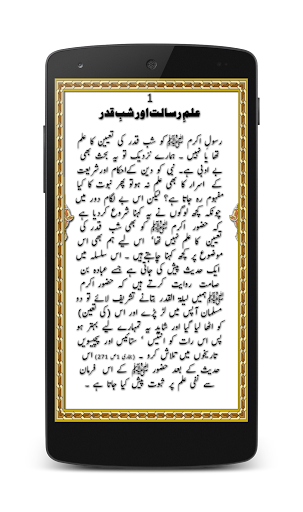 1
علم رسالت اور شب قدر
رسول اکرم ﷺ کو شب قدر کی تعیین کا علم
تھا یا نہیں ۔ ہمارے نزدیک تو یہ بحث بھی
بے ادبی ہے ۔ نبی کو دین کے احکام اور شریعت
کے اسرار کا بھی علم نہ ہو تو پھر نبوت کا کیا
مفہوم رہ جاتا ہے؟ لیکن اس بے لگام دور میں
چونکہ کچھ لوگوں نے یہ کہنا شروع کردیا ہے
کہ حضور اکرم ﷺ کو بھی شب قدر کی
تعیین کا علم نہیں تھا اس لیے ہم بھی اس
موضوع پر کچھ کہنا چاہتے ہیں ۔ اس سلسلہ میں
ایک حدیث پیش کی جاتی ہے جسے عبادہ بن
صامت روایت کرتے ہیں کہ حضور اکرم
ﷺ ہمیں لیلۃ القدر بتانے تشریف لائے تو دو
مسلمان آپس میں لڑ پڑے اور اس (کی تعیین)
کو اٹھا لیا گیا اور شاید یہ تمہارے لیے بہتر ہو
پس اس رات کو انتیس ' ستائیس اور پچیسویں
تاریخوں میں تلاش کرو ۔ (بخاری ص 271) اس
حدیث کے بعد حضور ﷺ کے اس فرمان
سے نفی علم پر ثبوت پیش کیا جاتا ہے ۔